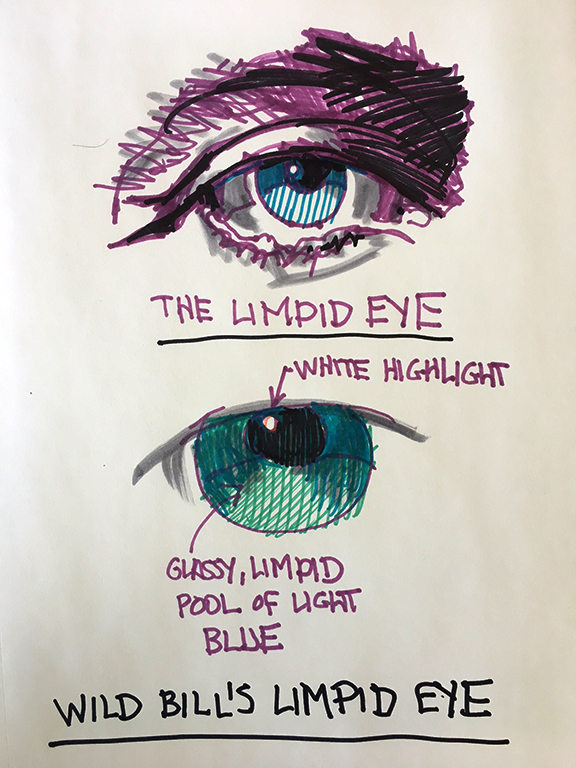 THE LIMPID EYE
WHITE HIGHLIGHT
GLASSY, LIMPID
POOL OF LIGHT
BLUE
WILD BILL'S LIMPID EYE